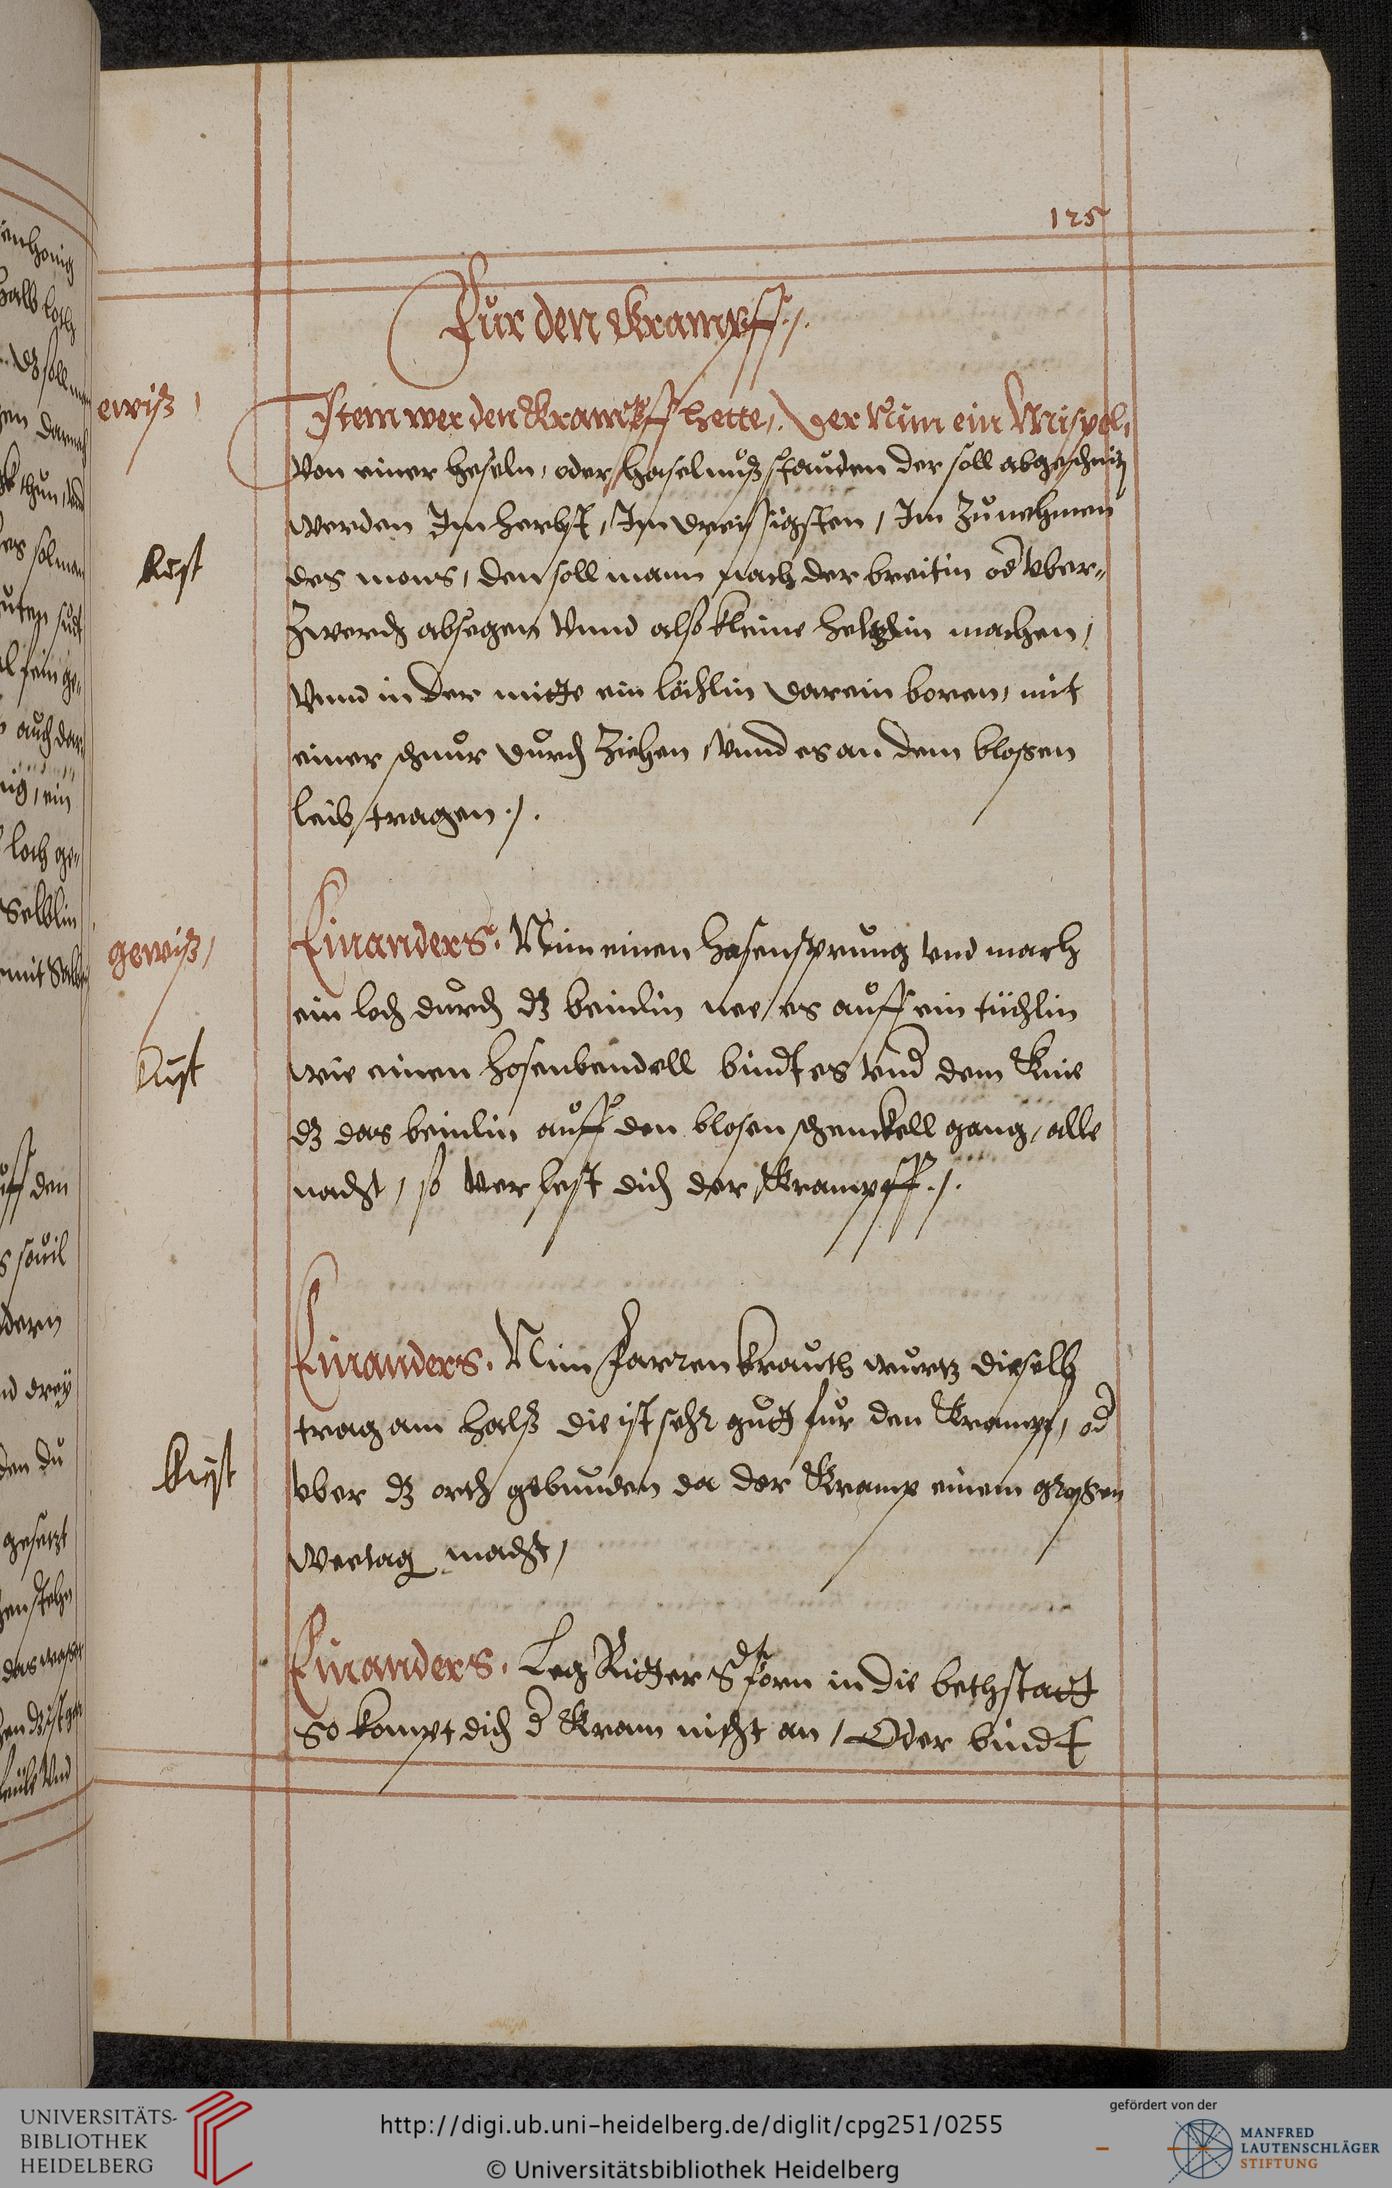 125
Fur den Krampff ./.
ewiß /
Item wer den Krampff hette, der Nim ein Mispel,
von einer heseln, oder haselnuß stauden der soll abgeschnitz
werden Im herbst, Im dreissigsten, Im Zunehmen
des mons, den soll mann nach der breitin od vber-
Zwerch absegen vnnd also kleine heltzlin machen,
vnnd in der mitte ein löchlin darein boren, mit
einer schnur durch Ziehen, vnnd es an dem blossen
leib tragen ./.
gewiß /
Einanders. Nim einen hasensprung vnd mach
ein loch durch dz beinlin nee es auff ein tüchlin
wie einen hosenbendell bindt es vnd dem Knie
dz das beinlin auff den blosen schenckell gang, alle
nacht, so verlest dich der Krampff ./.
Einanders. Nim farren krauth wurtz dieselb
trag am halß die ist sehr gutt fur den Krampf, od
vber dz orth gebunden da der Kramp einem grosen
weetag macht,
Einanders. Leg Ritter Sporn in die bethstatt
So kompt dich d Kram nicht an, Oder bindt
UNIVERSITÄTS-
BIBLIOTHEK
HEIDELBERG
http://digi.ub.uni-heidelberg.de/diglit/cpg251/0255
© Universitätsbibliothek Heidelberg
gefördert von der
MANFRED
LAUTENSCHLÄGER
STIFTUNG